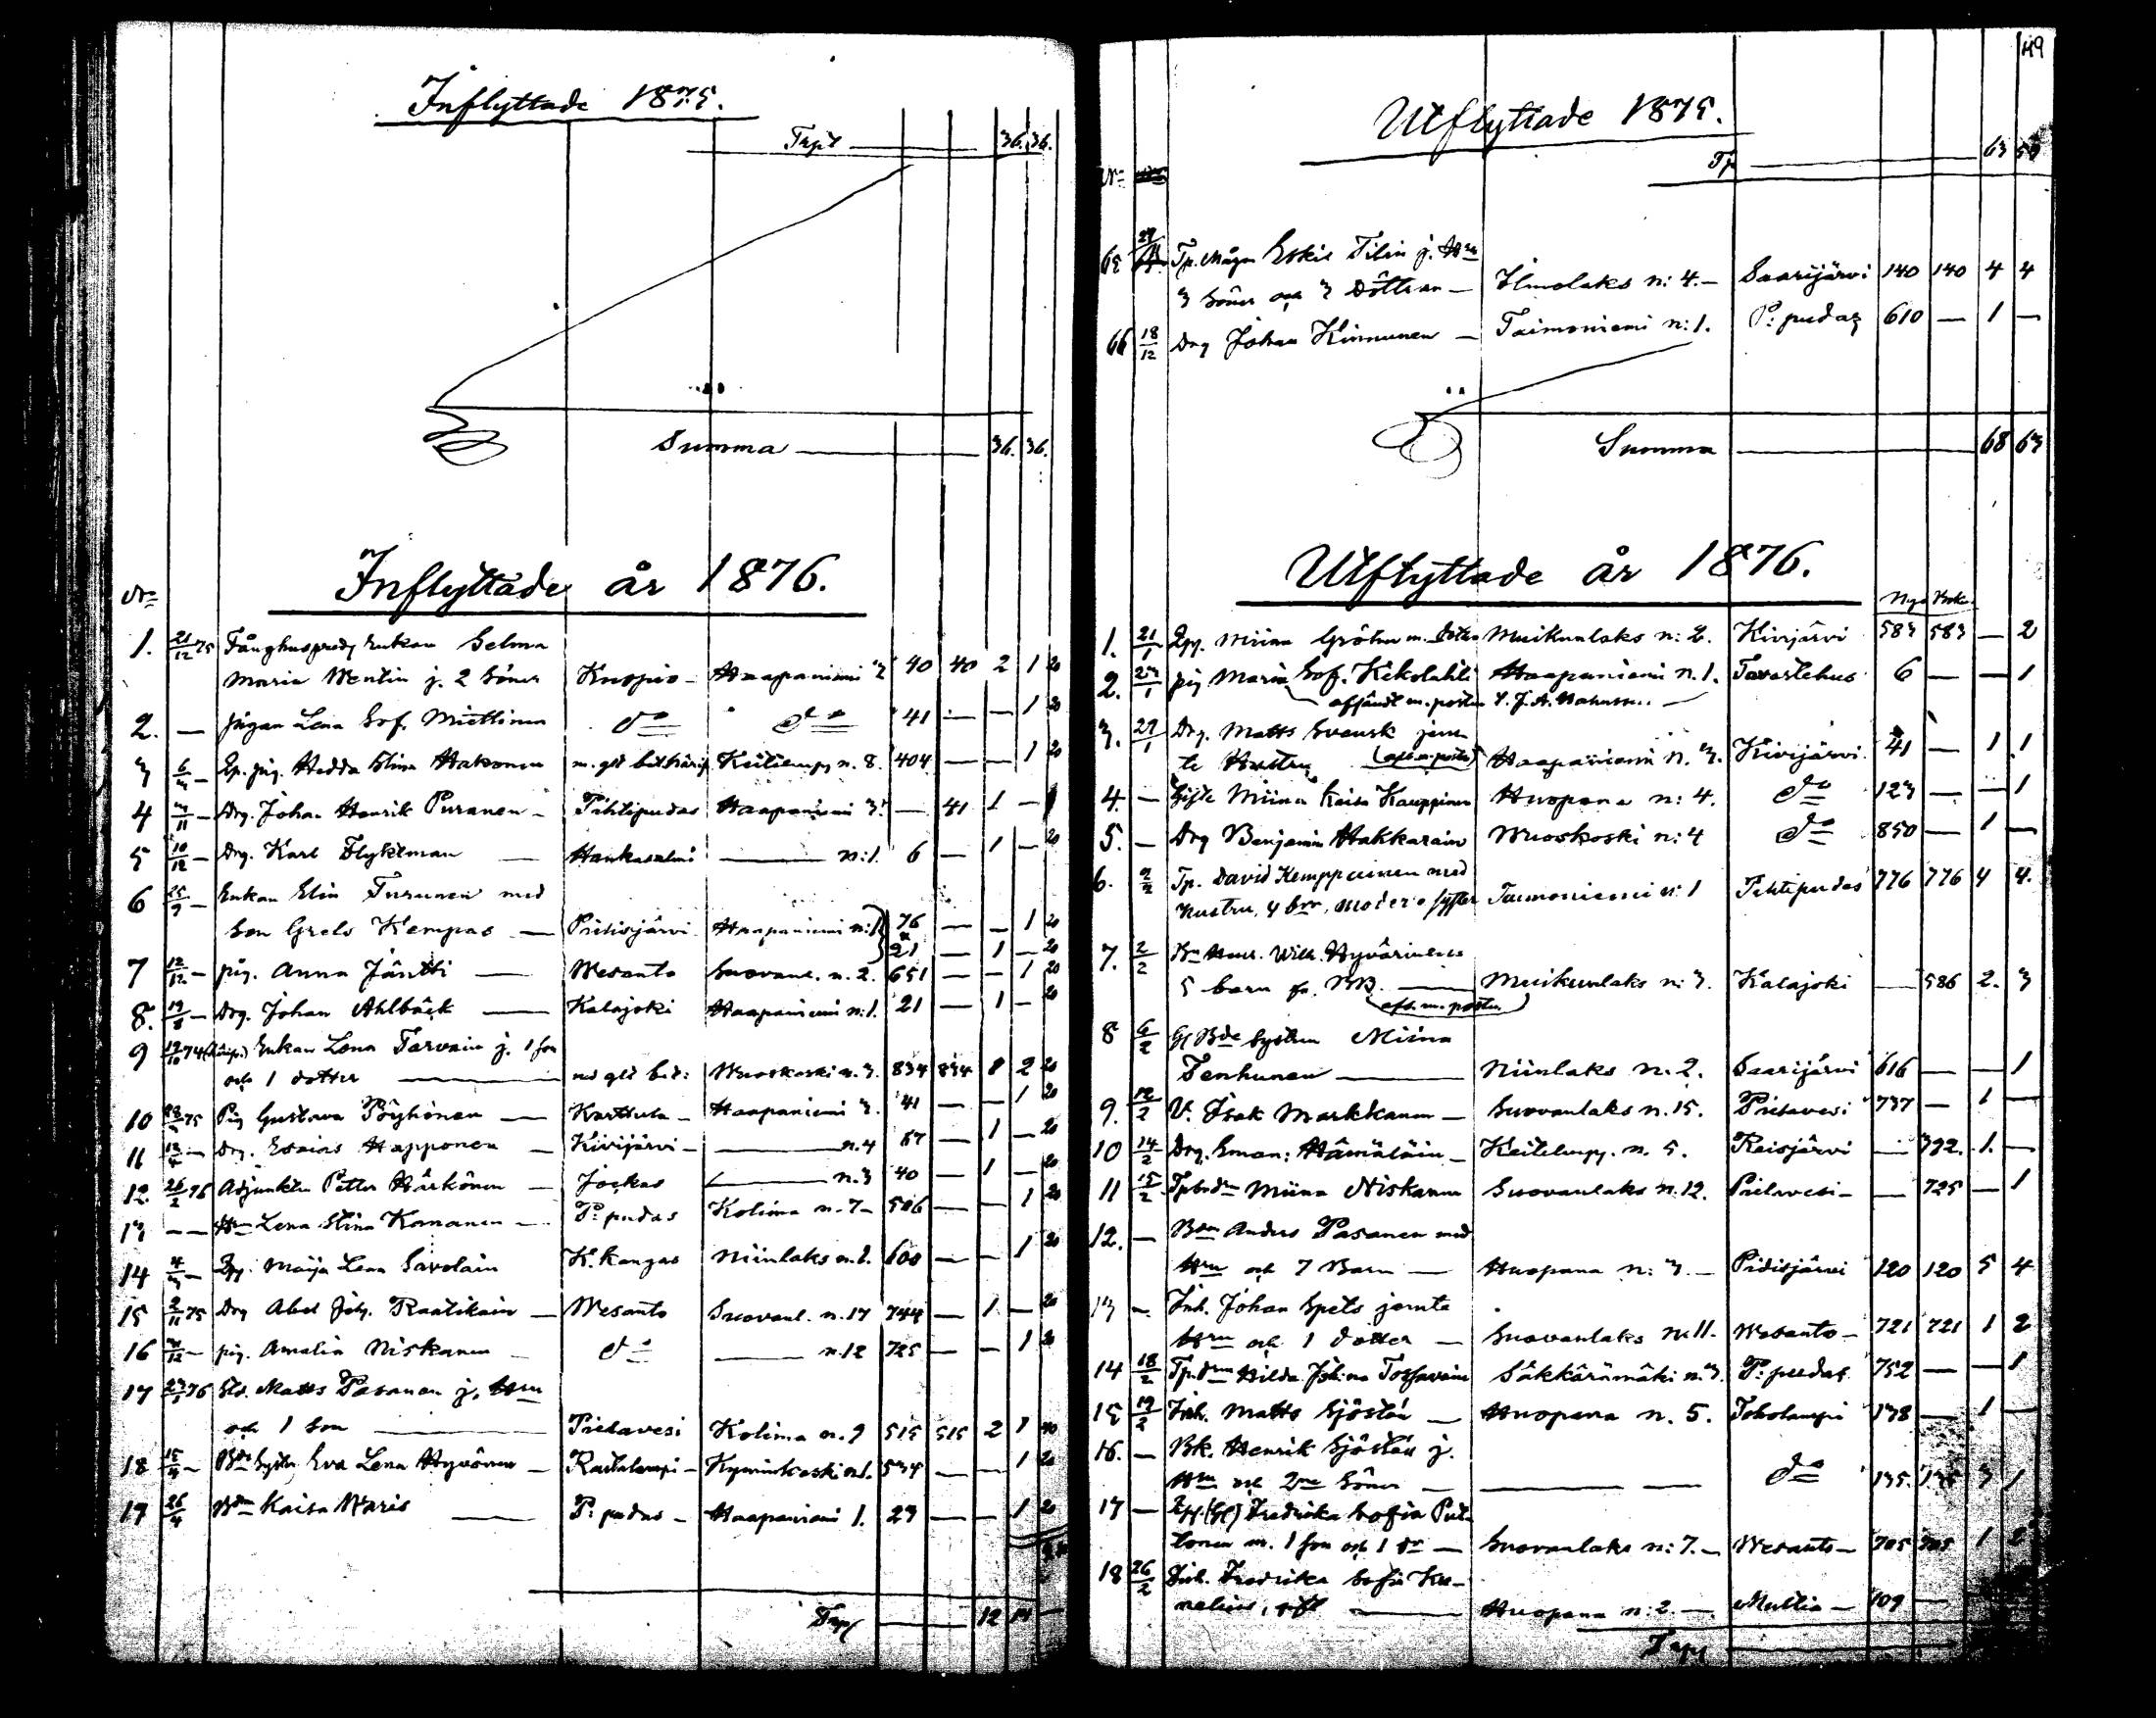 Inflyttade 1875.
Trspt 36. 36.
Summa 36. 36.
Inflyttade år 1876.
No
1. 21/12 75 Fånghuspred. Enkan Selma
Maria Wentin j. 2 Söner Kuopio - Haapaniemi 2 40 40 2 1 20
2. — pigan Lena Sof. Miettinen do do 41 — — 1 20
3 6/ — Ep. pig. Hedda Stina Hakonen m. gl. Keitelempp n. 8. 404 — — 1 20
4 /11 — Drg. Johan Henrik Puranen - Pihtipudas Haapaniemi 3. — 41 1 —
5 10/12 — Drg. Karl Flyktman — Hankasalmi — n:1. 6 — 1 — 20
6 25/9 — Enkan Elin Turunen med
Son Grels Kempas — Pidisjärvi Haapaniemi n:1 76 — — 1 20
21 — 1 — 20
7 12/12 — pig. Anna Jäntti — Wesanto Suovanl. n. 2. 651 — — 1 20
8. 19/8 — Drg. Johan Ahlbäck — Kalajoki Haapaniemi n:1. 21 — 1 — 20
9 19/10 74 Enkan Lena Tarvain j. 1 son
och 1 dotter — Wuoskoski n. 3. 834 834 8 2 20
10 75 Pig Gustava Pöyhönen — Karttula - Haapaniemi 3. 41 — — 1 20
11 13/4 — Drg. Esaias Happonen — Kivijärvi - — n. 4 67 — 1 — 20
12. 26/2 76 Adjunkten Petter Härkönen — Jockas — n. 3 40 — 1 — 20
13 — — Hu Lena Stina Kananen — P:pudas Kolima n. 7 - 506 — — 1 20
14 4/3 — Maija Lena Savolain K. kangas Niinlaks n. 2. 600 — — 1 20
15 2/11 75 Drg Abel Joh. Raatikain — Wesanto Suovanl. n. 17 744 — 1 — 20
16 /12 — pig. Amalia Niskanen — do — n. 12 725 — — 1 20
17 23/ 76 Matts Pasanen j. Hru
och 1 son — Pielavesi Kolima n. 9 515 515 2 1 40
18 15/4 — Eva Lena Hyvönen — Rautalampi - Kyminkoski n. 1. 534 — — 1 20
19 26/4 Kaisa Waris — P:pudas - Haapaniemi 1. 23 — — 1 20
Trspt 12 14 —
49
Utflyttade 1875.
Tp 63 59
No
65 29/ Tp. Mågen Eskil Tilin j. Hru
3 Söner och 3 Döttrar — Ilmolaks n: 4. - Saarijärvi 140 140 4 4
66 18/12 Drg Johan Kinnunen — Taimoniemi n:1. P:pudas 610 — 1 —
Summa 68 63
Utflyttade år 1876.
Nya Bok.
1. 21/1 Miina Gröhn m. Dotter Muikunlaks n: 2. Kivijärvi 583 583 — 2
2. 23/1 pig Maria Sof. Kekolahti Haapaniemi n. 1. Tavastehus 6 — — 1
afsändt m. posten
3. 27/1 Drg. Matts Svensk jem-
te Hustru (afs. m. posten) Haapaniemi n. 3. Kivijärvi 41 — 1 1
4. — Gifte Miina Kaisa Kauppinen Huopana n: 4. do 123 — — 1
5. — Drg Benjamin Hakkarain Wuoskoski n: 4 do 850 — 1 —
6. 2/2 Tp. David Kemppainen med
hustru, 4 brn, moder o syster Taimoniemi n: 1 Pihtipudas 776 776 4 4.
7. 2/2 Henr. Wilh. Hyvärinens
5 barn — Muikunlaks n: 3. Kalajoki — 586 2. 3
(afs. m. posten)
8 6/2 Systern Miina
Tenhunen — Niinlaks n. 2. Saarijärvi 616 — — 1
9. 12/2 V. Isak Markkanen — Suovanlaks n. 15. Pielavesi 737 — 1 —
10 14/2 Drg. Eman: Hämäläin — Keitelempp. n. 5. Reisjärvi — 392. 1. —
11 15/2 Miina Niskanen Suovanlaks n. 12. Pielavesi - — 725 — 1
12. — Bdn Anders Pasanen med
Hru och 7 Barn — Huopana n: 3. - Pidisjärvi 120 120 5 4
13 — Inh. Johan Spets jemte
Hru och 1 dotter — Suovanlaks n. 11. Wesanto - 721 721 1 2
14 18/2 Hilda Johanna Tossavain Säkkärämäki n. 3. P:pudas 752 — — 1
15 19/2 Inh. Matts Sjöstén — Huopana n. 5. Toholampi 138 — 1 —
16. — Bk. Henrik Sjöstén j.
Hru och 2ne Söner — — do 135. 135 3 1
17 — Fredrika Sofia Put-
tonen m. 1 son och 1 dr — Suovanlaks n: 7. - Wesanto - 705 705 1 2
18 26/2 Inh. Fredrika Sofia
Huopana n: 2. - Multia - 109 —
Trspt